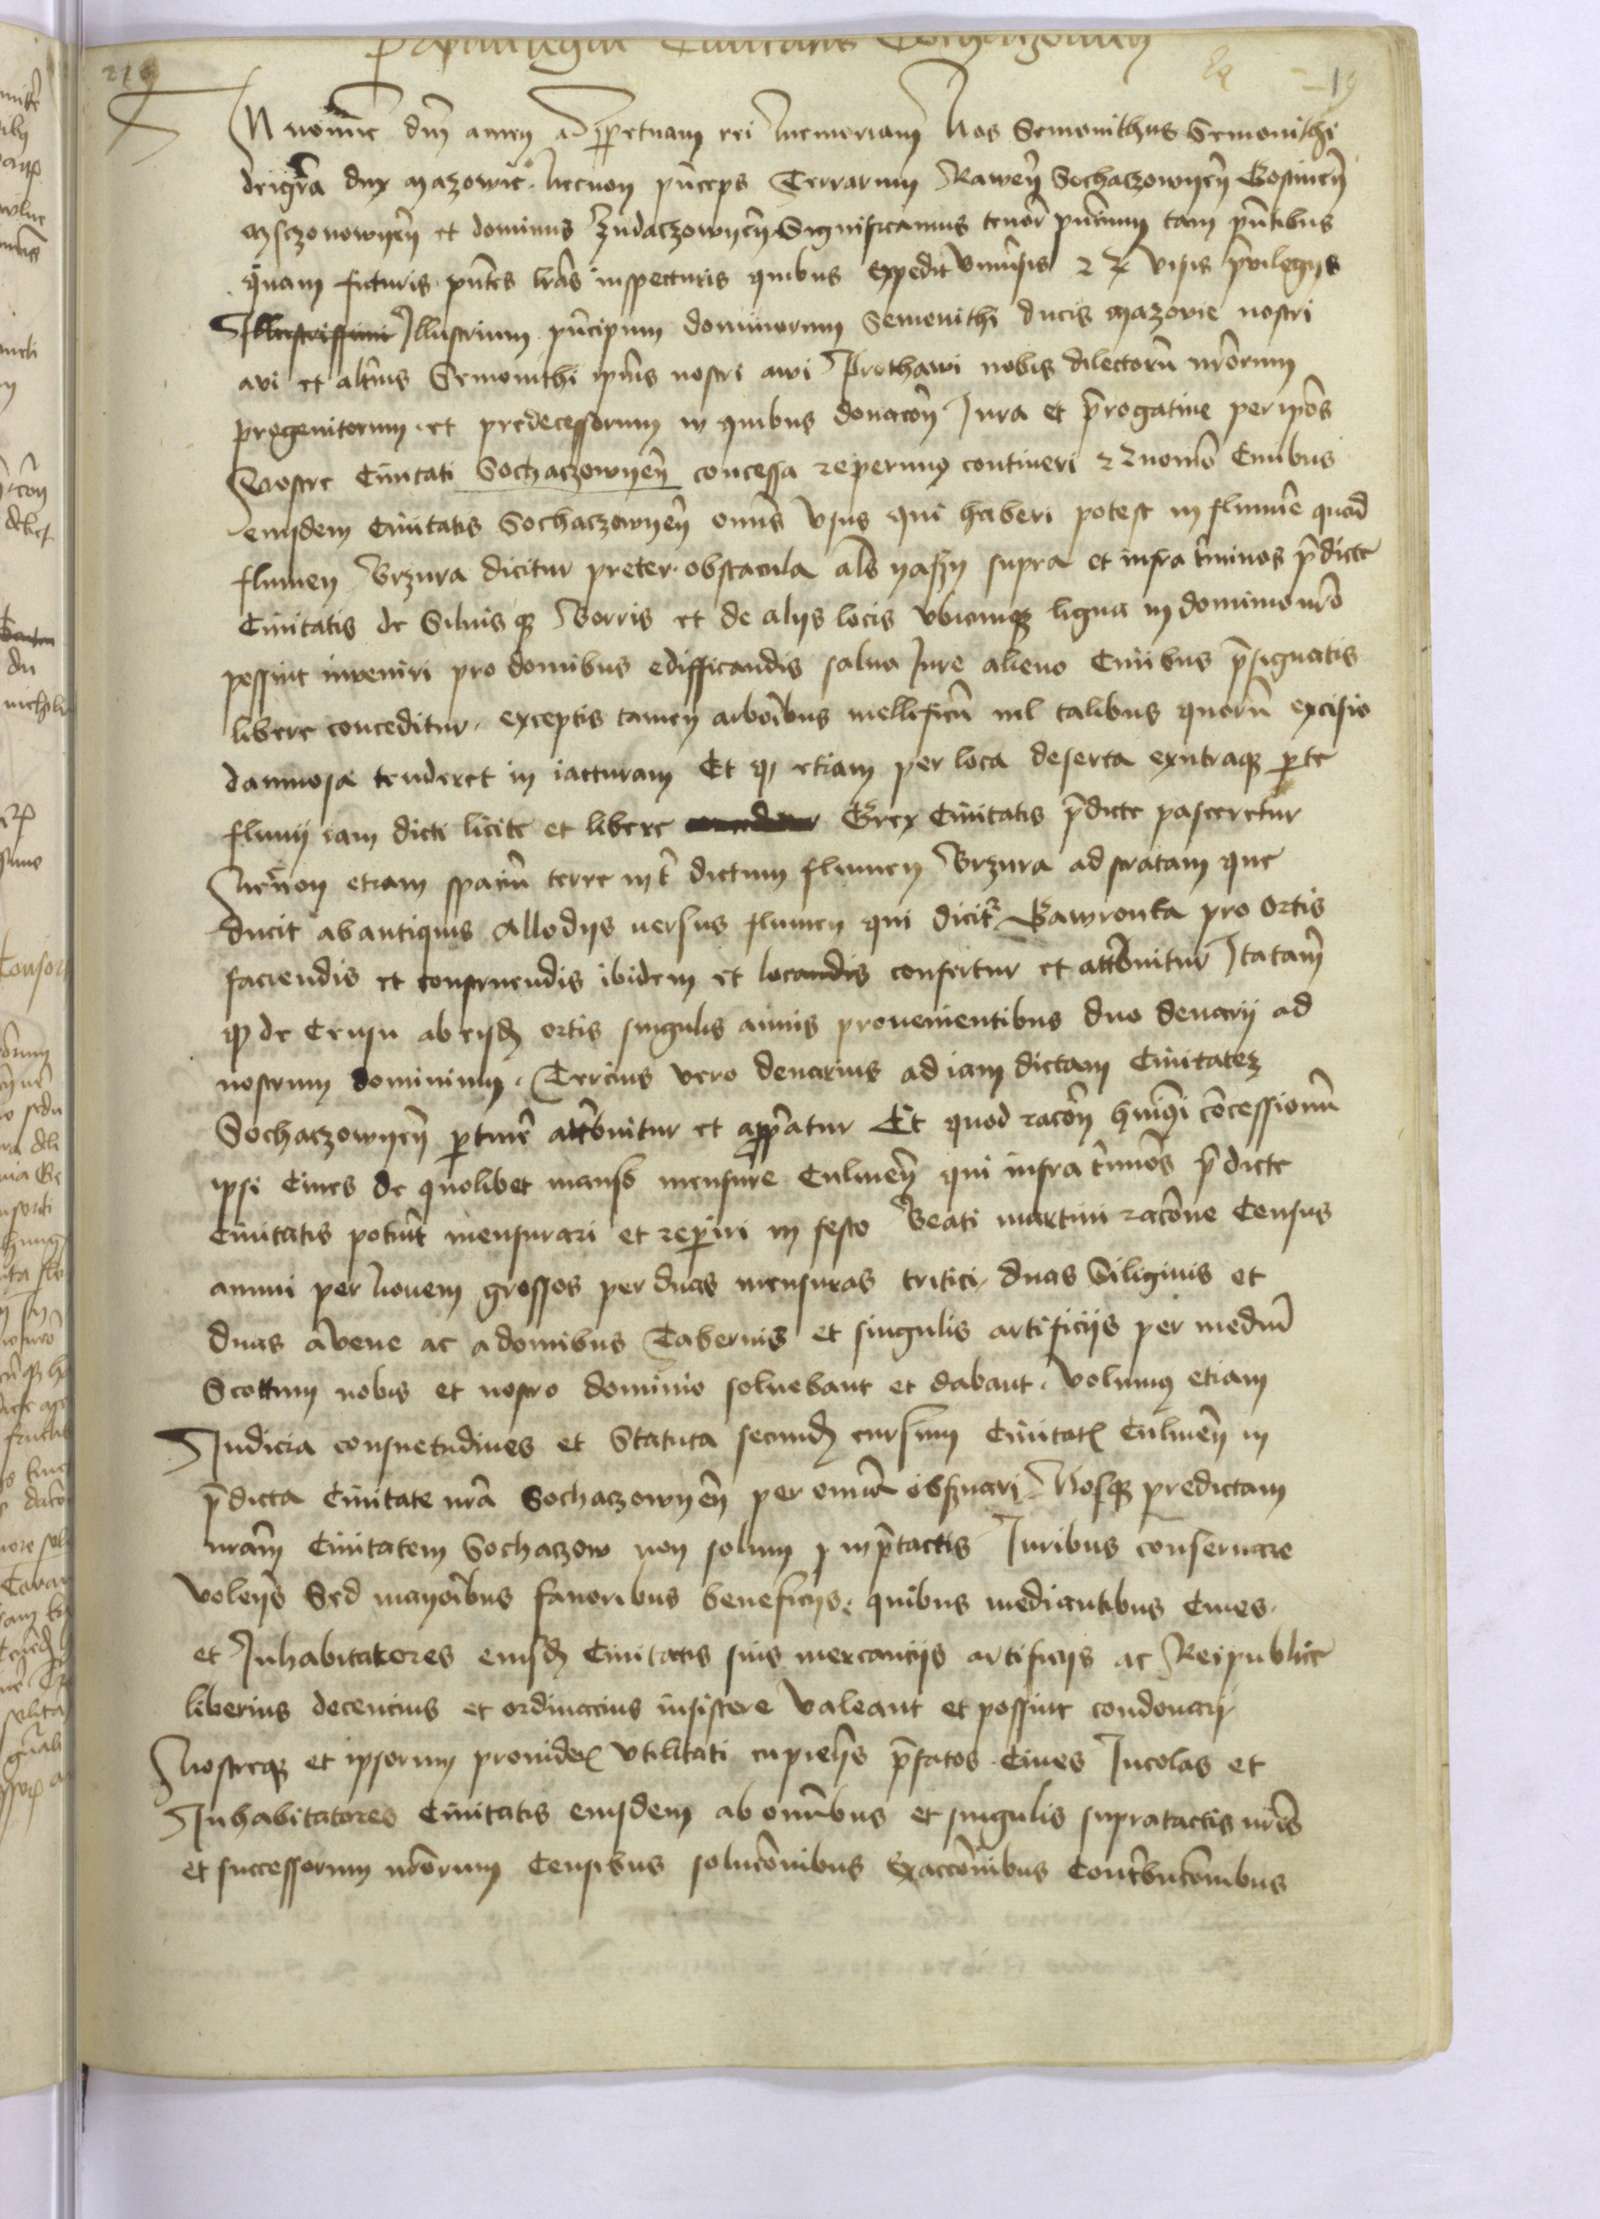 219
19
In no͞mie dn͞i amen ad p̱petuam rei memoriam Nos Semouithus Semouithi
dei gr͞a dux mazowie necnon p͞nceps Terrarum Rawen͞ Sochaczowyen͞ Gostinen͞
et dominus Significamus tenor͞ pn͞cium tam pn͞tibus
quam futuris pn͞tes lr͞as inspecturis quibus expedit vniu͞sis visis p͞uilegijs
Illustrissimi Illustrium p͞ncipum dominorum Semouithi ducis mazouie nostri
aui et alt͞ius Semouithi ip͞ius nostri awi Prothawi nobis dilectoru͞ nr͞orum
progenitorum et predecessorum in quibus donaco͞n Jura et p͞rogatiue per ip͞os
Nostre Ciuitati Sochaczowyen͞ concessa reperimus contineri Ciuibus
eiusdem Ciuitatis Sochaczowyen͞ omn͞s vsus qui haberi potest in flumi͞e quod
flumen Brzura dicitur preter obstacula al͞s yaszy supra et infra t͞minos p͞dicte
Ciuitatis de Siluis q̱ Borris et de alijs locis vbicunq̱ ligna in dominio nr͞o
possint inueniri pro domibus edifficandis salua Jure alieno Ciuibus p͞signatis
libere conceditur exceptis tamen arbo͞ibus mellificu͞ vel talibus quoru͞ excisio
damnosa tenderet in iacturam Et q̱ etiam per loca deserta ex utraq̱ p̱te
fluuij iam dicti licite et libere Grex Ciuitatis p͞dicte pasceretur
Necnon etiam spaciu͞ terre int͞ dictum flumen Brzura ad stratam que
ducit ab antiquis Allodijs uersus flumen qui dicit͞ Gawronka pro Ortis
faciendis et construendis ibidem et locandis confertur et att͞buitur Ita tam͞
q̱ de Censu ab eisḏ ortis singulis annis prouenientibus duo denarij ad
nostrum dominium Tercius vero denarius ad iam dictam Ciuitatez
Sochaczowyen͞ p̱tine͞ att͞buitur et app͞atur Et quod raco͞n hmo͞i co͞cessionu͞
ipsi Ciues de quolibet manso mensure Culmen͞ qui infra t͞mino͞s p͞dicte
Ciuitatis potu͞it mensurari et rep̱iri in festo Beati martini raco͞ne Census
annui per Nouem grossos per duas mensuras tritici duas Siliginis et
duas auene ac a domibus Tabernis et singulis artificijs per mediu͞
Scottum nobis et nostro dominio soluebant et dabant volumus etiam
Judicia consuetudines et Statuta secunḏ cursum Ciuitat͞ Culmen͞ in
p͞dicta Ciuitate nr͞a Sochaczowyen͞ per omi͞a obs̱uari Nosq̱ predictam
nram͞ Ciuitatem Sochaczow non solum p͞tactis Juribus conseruare
volen͞s Sed mayo͞ibus fauoribus beneficijs quibus mediantibus Ciues
et Inhabitatores eiusḏ Ciuitatis suis mercancijs artificijs ac Reipublice
liberius decencius et ordinacius insistere valeant et possint condonari
Nostreq̱ et ipsorum prouide͞ vtilitati cupien͞s p͞fatos Ciues Incolas et
Inhabitatores Ciuitatis eiusdem ab omi͞bus et singulis supratactis nr͞is
et successorum nr͞orum Censibus soluco͞nibus Exacco͞nibus Cont͞buco͞nibus